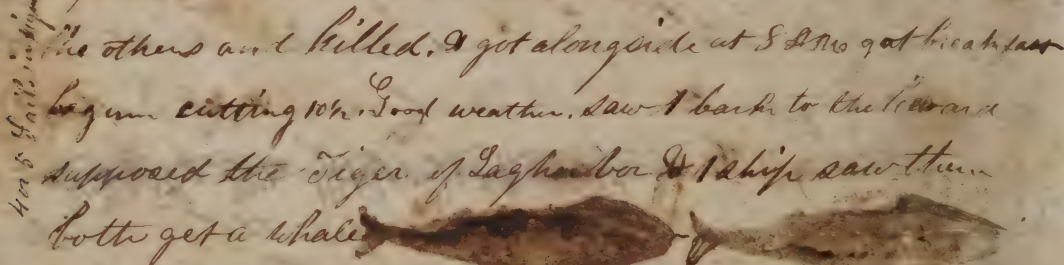 4 or 5 Sails in sight
the others and killed. & got alongside at 8 AM got breakfast
begun cutting 10½. Good weather. saw 1 bark to the leeward
supposed the Tiger of Sagharbor & 1 ship saw them
both get a whale